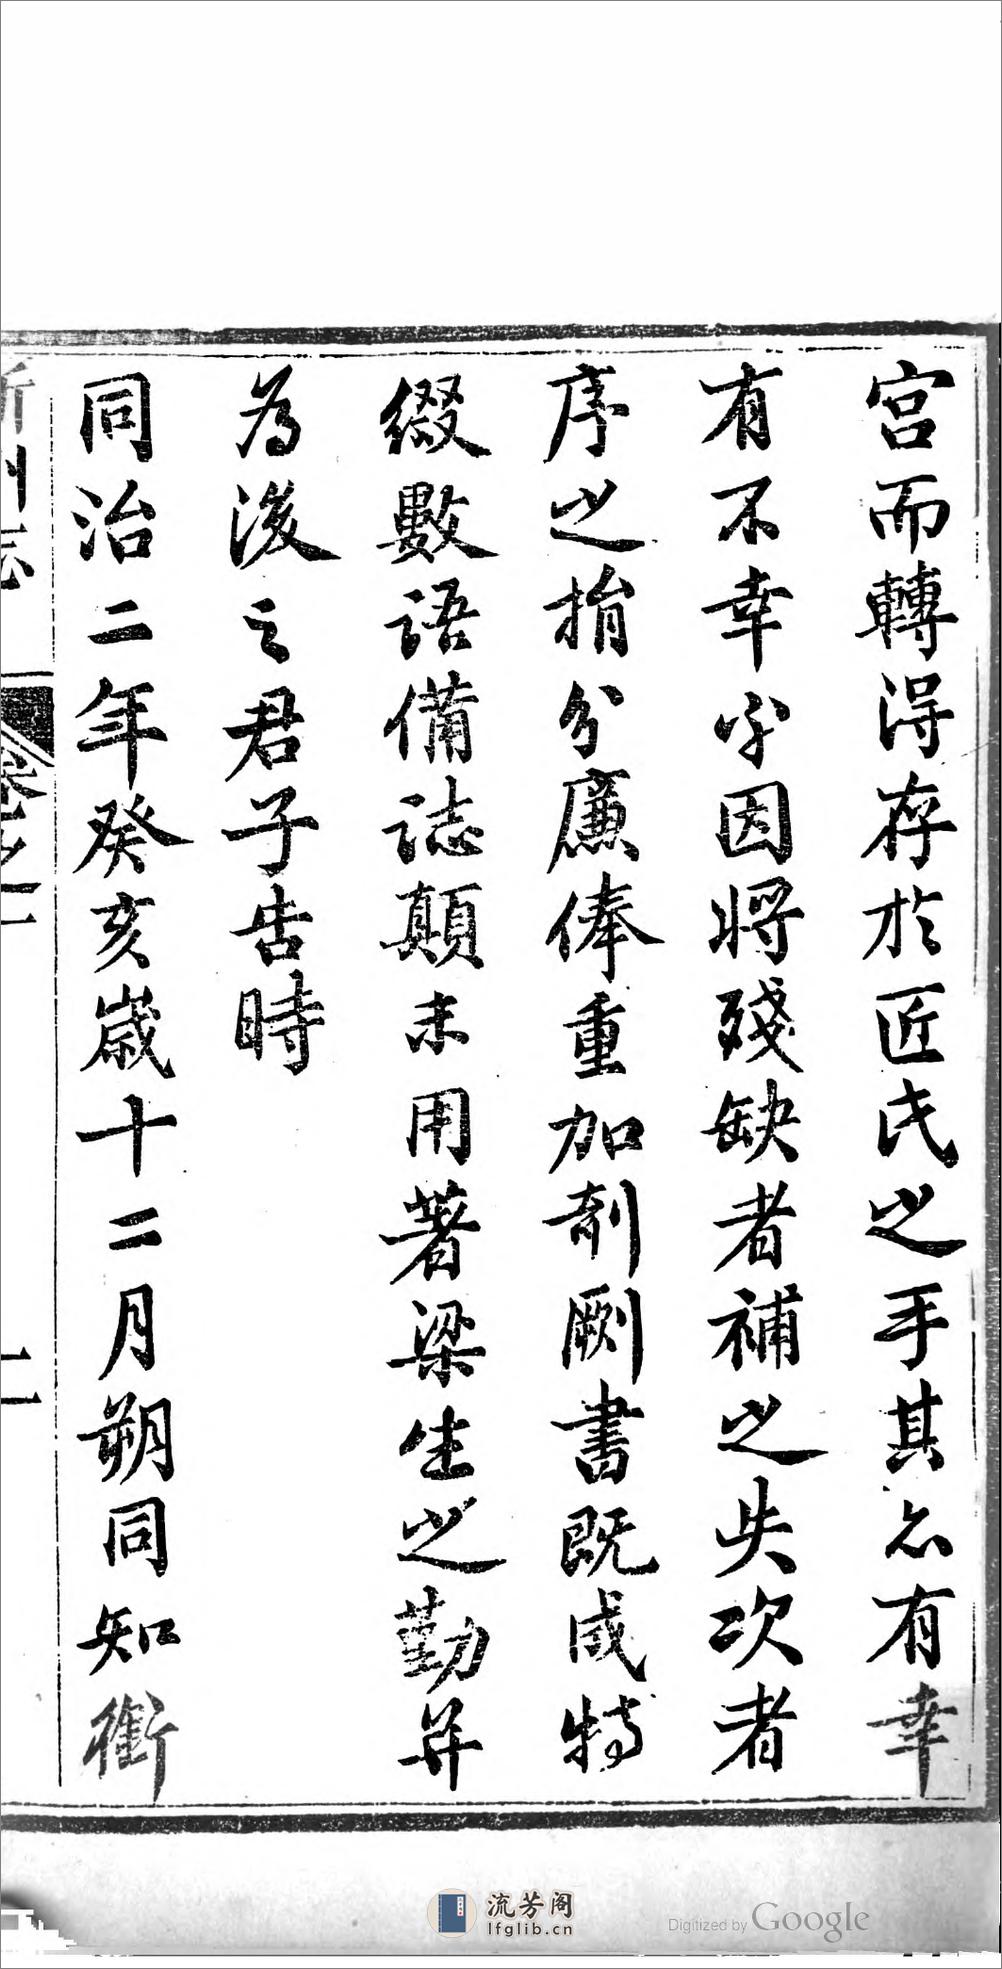 宫而轉淂存於匠氏之手其亦有幸
有不幸乎因將殘缺者補之失次者
序之捐分廉俸重加剞劂書既成特
綴數語備誌顛末用著梁生之勤并
為後之君子告時
同治二年癸亥歲十二月朔同知銜
州志
卷之一
二
流芳阁
lfglib.cn
Digitized by Google